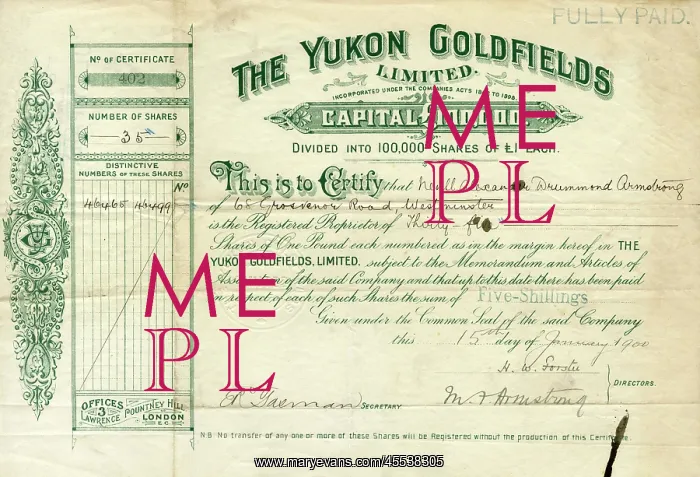 FULLY PAID.
THE YUKON GOLDFIELDS
LIMITED.
INCORPORATED UNDER THE COMPANIES ACTS TO 1898.
CAPITAL
DIVIDED INTO 100,000 SHARES OF £1 EACH.
Nº OF CERTIFICATE
402
NUMBER OF SHARES
35
DISTINCTIVE
NUMBERS OF THESE SHARES
Nº
46465 46499
This is to Certify that Nevill Alexander Drummond Armstrong
of 68 Grosvenor Road, Westminster
is the Registered Proprietor of Thirty-five
Shares of One Pound each numbered as in the margin hereof in THE
YUKON GOLDFIELDS, LIMITED. subject to the Memorandum and Articles of
Association of the said Company and that up to this date there has been paid
in respect of each of such Shares the sum of Five-Shillings
Given under the Common Seal of the said Company
this 15th day of January 1900
H. W. Forster
DIRECTORS.
SECRETARY
Armstrong
OFFICES
3
LAWRENCE POUNTNEY HILL
LONDON
E.C.
N.B. No transfer of any one or more of these Shares will be Registered without the production of this Certificate.
ME
PL
ME
PL
www.maryevans.com/45538305